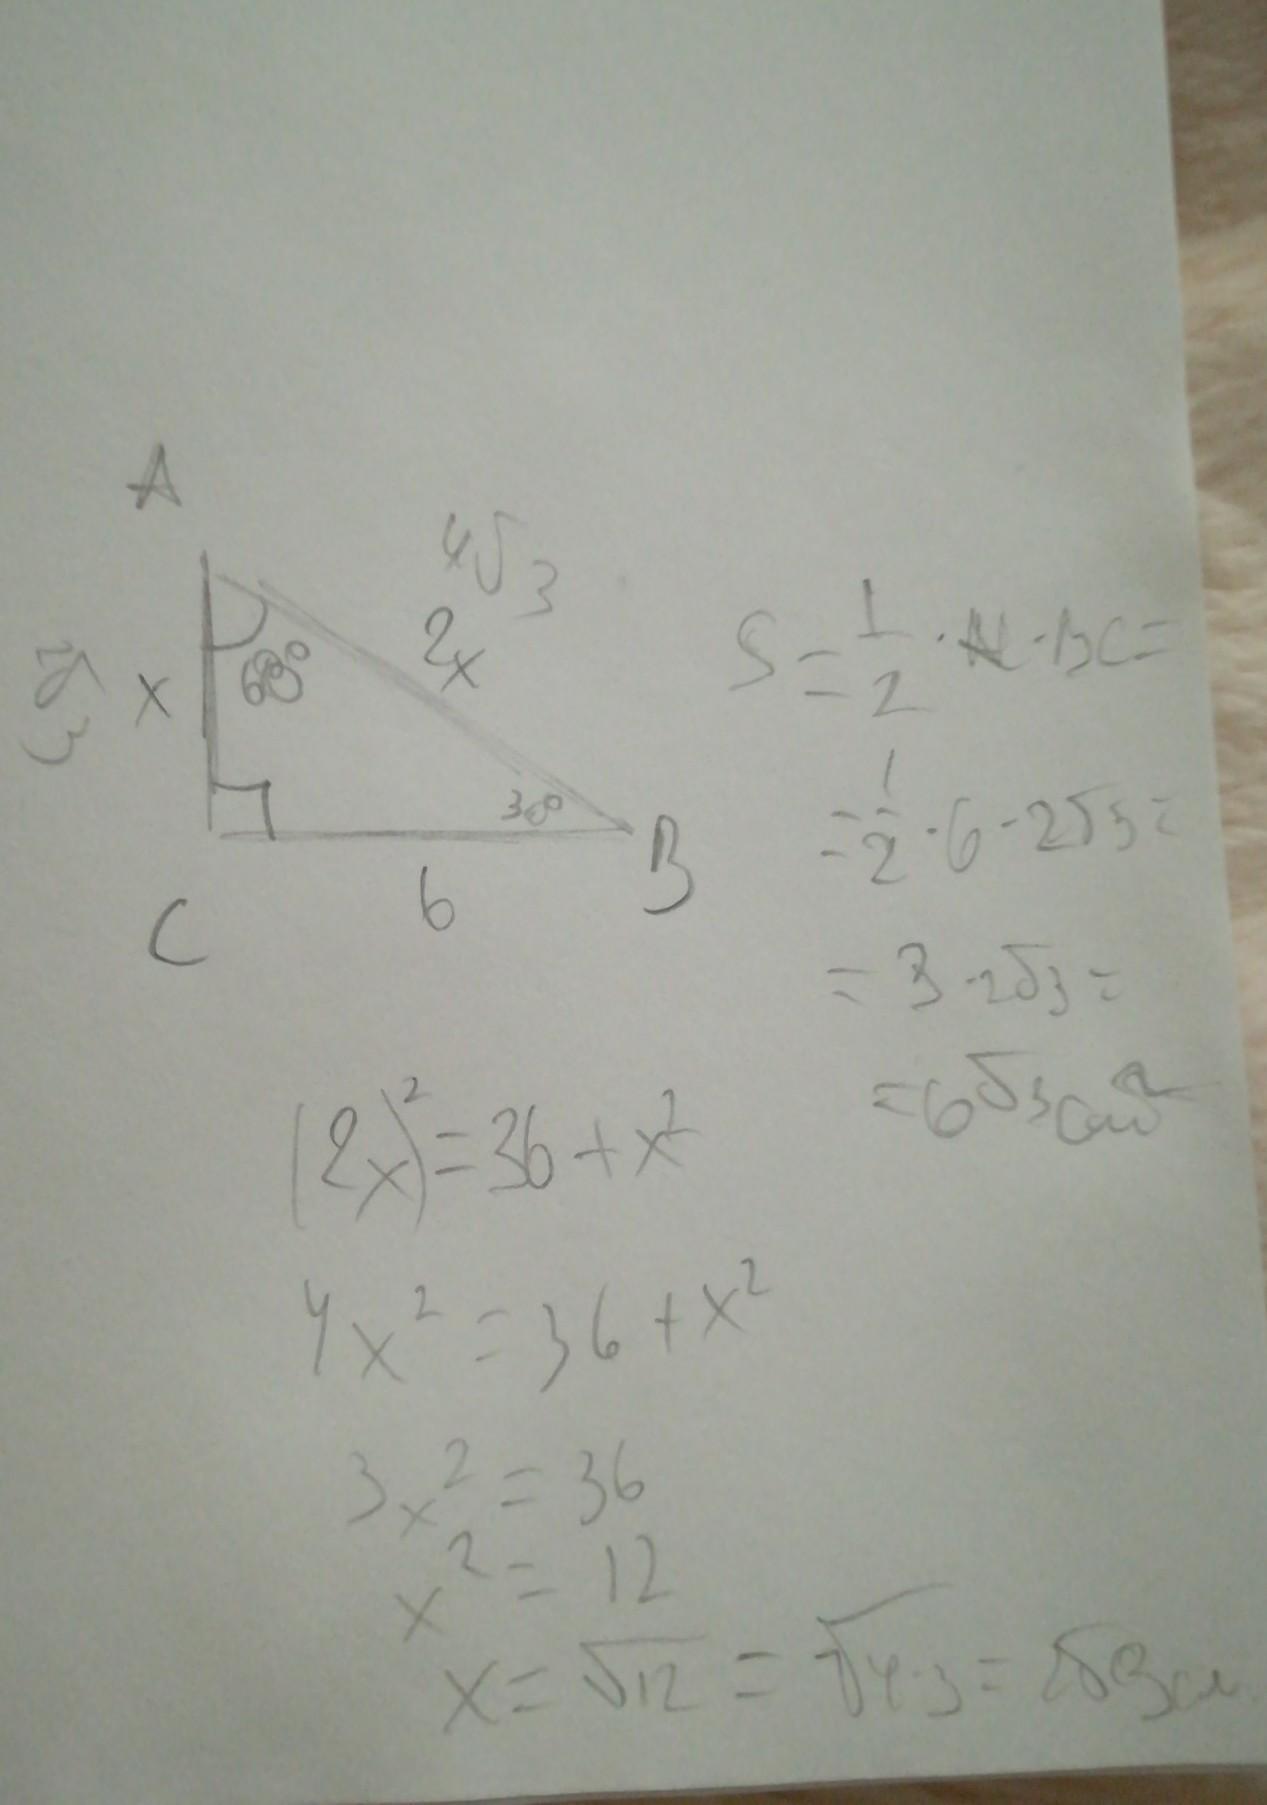 A
4√3
2x
60°
2√3
x
30°
B
6
C
S = 1/2 · AC · BC =
= 1/2 · 6 · 2√3 =
= 3 · 2√3 =
= 6√3 см²
(2x)² = 36 + x²
4x² = 36 + x²
3x² = 36
x² = 12
x = √12 = √4·3 = 2√3 см